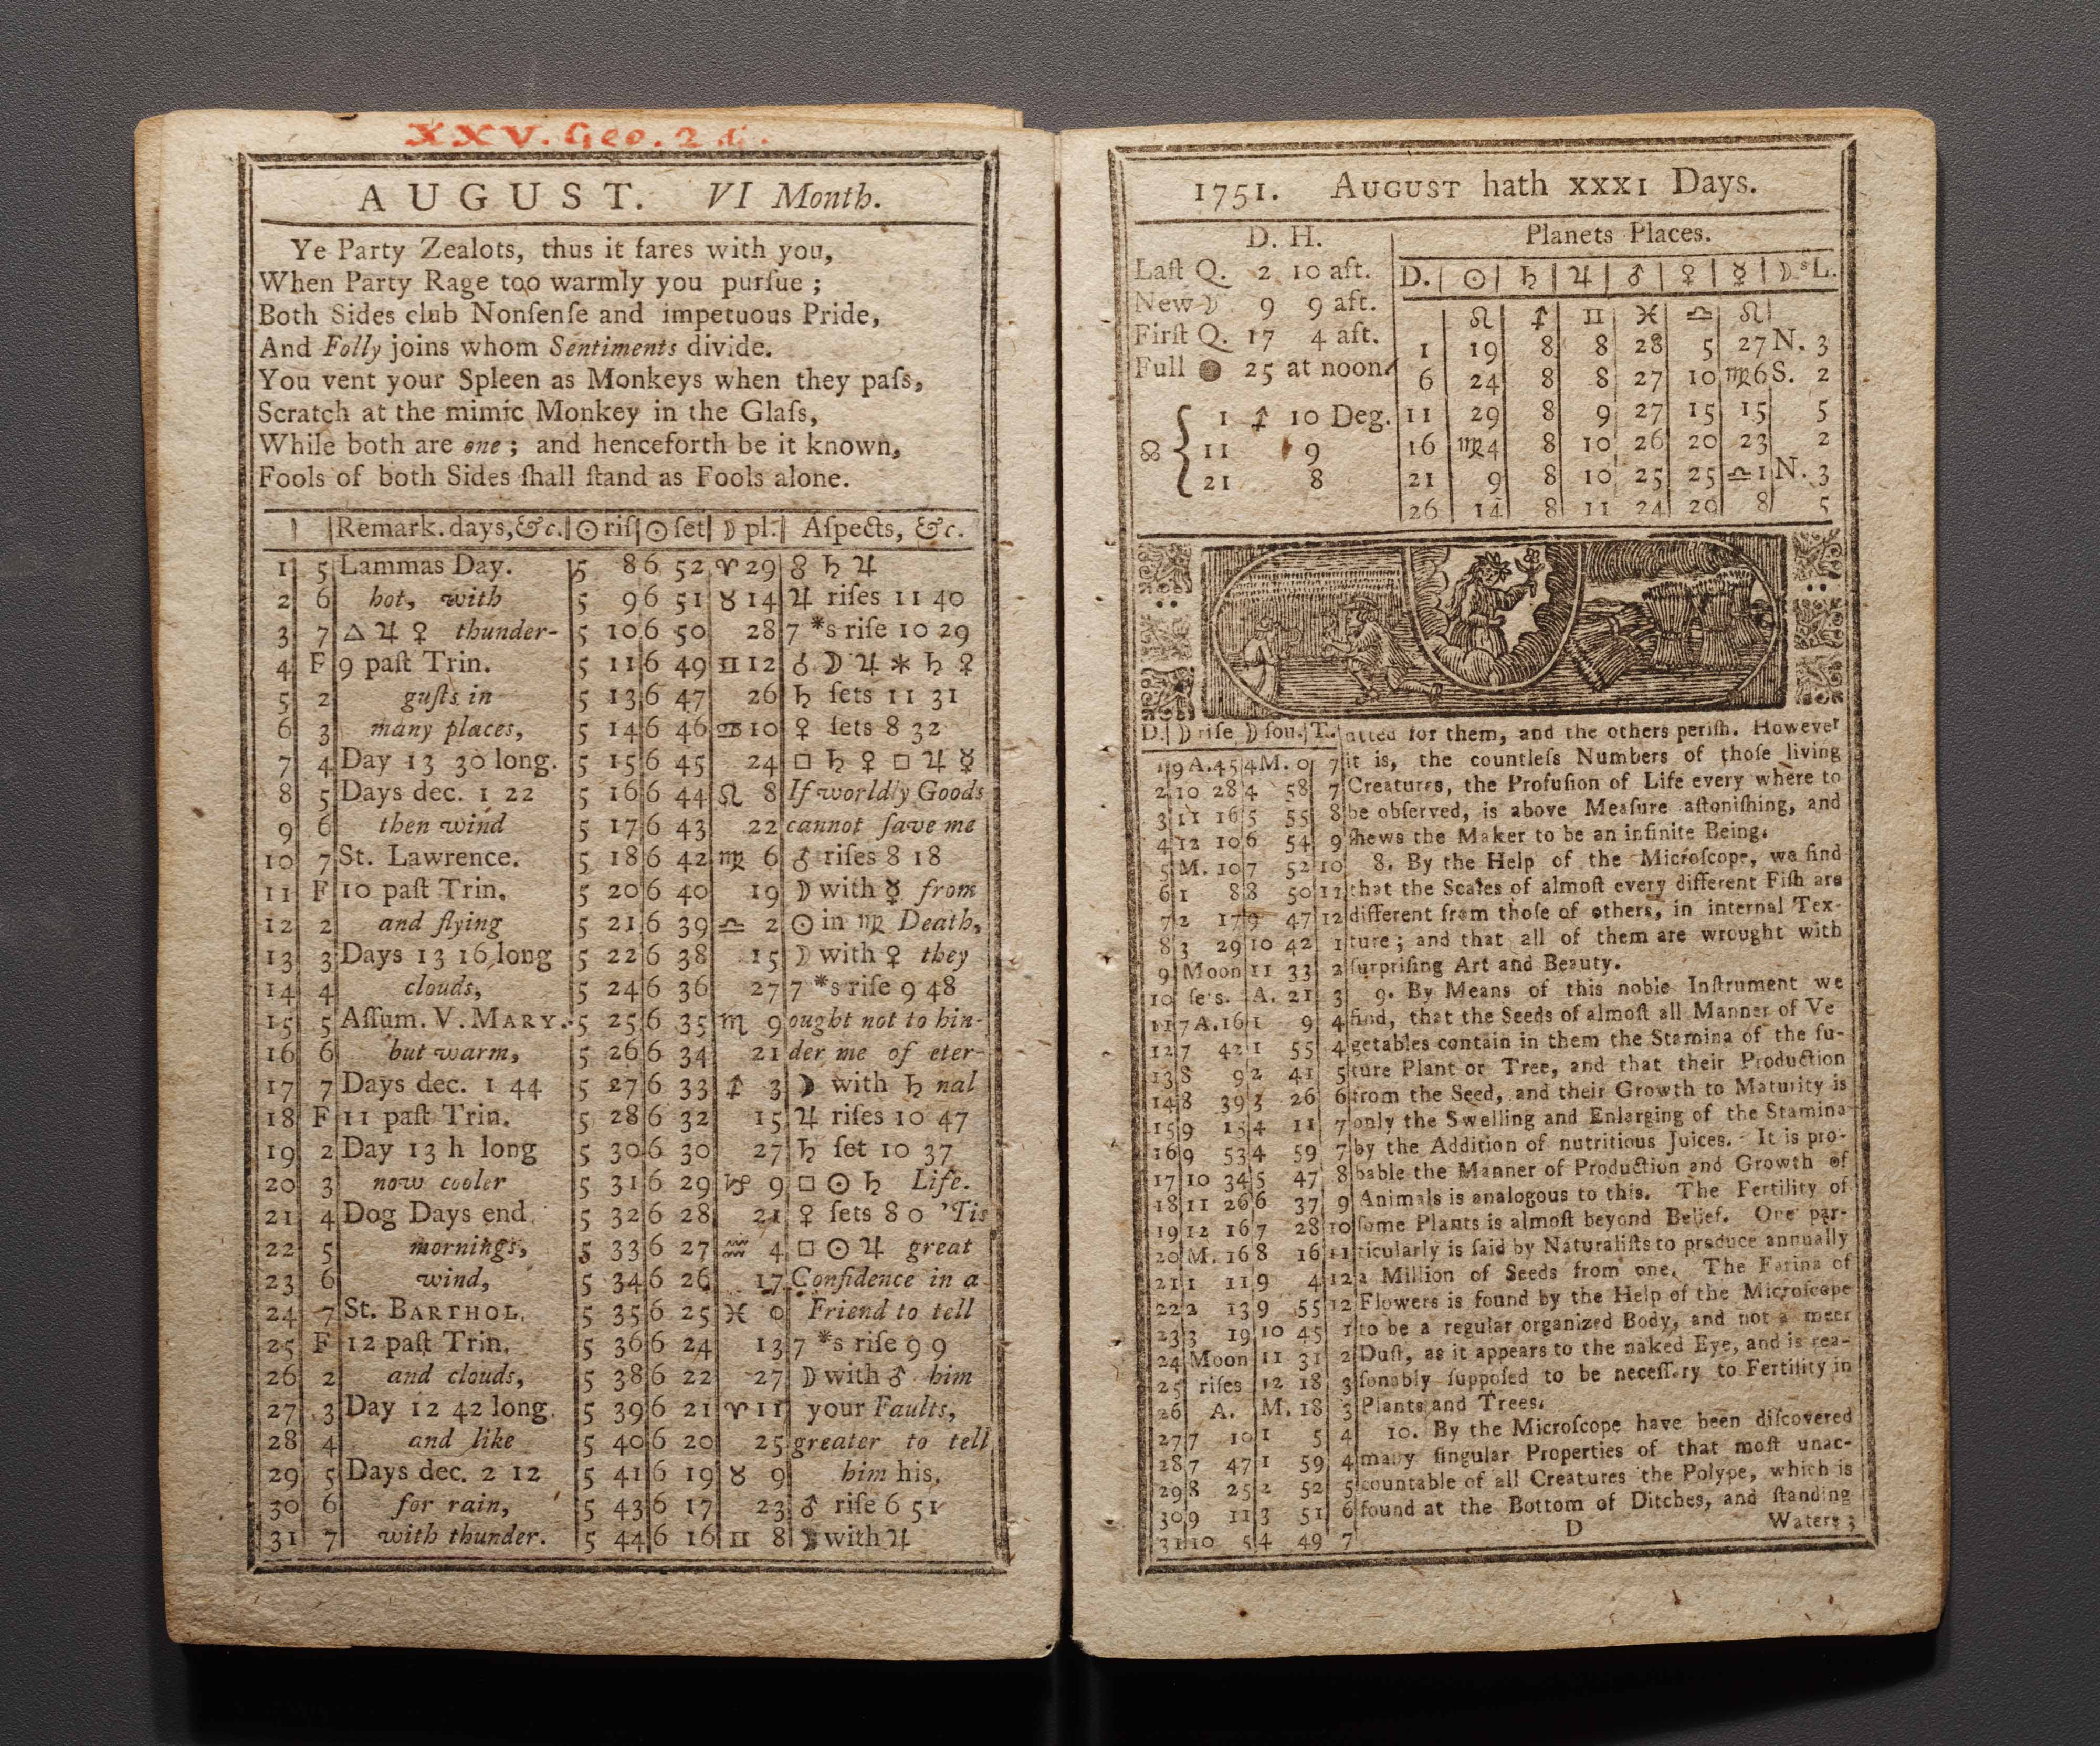 XXV. Geo. 2 di.
AUGUST. VI Month.
Ye Party Zealots, thus it fares with you,
When Party Rage too warmly you purſue ;
Both Sides club Nonſenſe and impetuous Pride,
And Folly joins whom Sentiments divide.
You vent your Spleen as Monkeys when they paſs,
Scratch at the mimic Monkey in the Glaſs,
While both are one ; and henceforth be it known,
Fools of both Sides ſhall ſtand as Fools alone.
Remark. days, &c. ☉ riſ ☉ ſet ☽ pl. Aſpects, &c.
1 5 Lammas Day. 5 8 6 52 ♈ 29 ☍ ♄ ♃
2 6 hot, with 5 9 6 51 ♉ 14 ♃ riſes 11 40
3 7 △ ♃ ♀ thunder- 5 10 6 50 28 7 *s riſe 10 29
4 F 9 paſt Trin. 5 11 6 49 ♊ 12 ☌ ☽ ♃ ⚹ ♄ ♀
5 2 guſts in 5 13 6 47 26 ♄ ſets 11 31
6 3 many places, 5 14 6 46 ♋ 10 ♀ ſets 8 32
7 4 Day 13 30 long. 5 15 6 45 24 □ ♄ ♀ □ ♃ ☿
8 5 Days dec. 1 22 5 16 6 44 ♌ 8 If worldly Goods
9 6 then wind 5 17 6 43 22 cannot ſave me
10 7 St. Lawrence. 5 18 6 42 ♍ 6 ♂ riſes 8 18
11 F 10 paſt Trin. 5 20 6 40 19 ☽ with ☿ from
12 2 and flying 5 21 6 39 ♎ 2 ☉ in ♍ Death,
13 3 Days 13 16 long 5 22 6 38 15 ☽ with ♀ they
14 4 clouds, 5 24 6 36 27 7 *s riſe 9 48
15 5 Aſſum. V. MARY. 5 25 6 35 ♏ 9 ought not to hin-
16 6 but warm, 5 26 6 34 21 der me of eter-
17 7 Days dec. 1 44 5 27 6 33 ♐ 3 ☽ with ♄ nal
18 F 11 paſt Trin. 5 28 6 32 15 ♃ riſes 10 47
19 2 Day 13 h long 5 30 6 30 27 ♄ ſet 10 37
20 3 now cooler 5 31 6 29 ♑ 9 □ ☉ ♄ Life.
21 4 Dog Days end 5 32 6 28 21 ♀ ſets 8 0 'Tis
22 5 mornings, 5 33 6 27 ♒ 4 □ ☉ ♃ great
23 6 wind, 5 34 6 26 17 Confidence in a
24 7 St. BARTHOL. 5 35 6 25 ♓ 0 Friend to tell
25 F 12 paſt Trin. 5 36 6 24 13 7 *s riſe 9 9
26 2 and clouds, 5 38 6 22 27 ☽ with ♂ him
27 3 Day 12 42 long. 5 39 6 21 ♈ 11 your Faults,
28 4 and like 5 40 6 20 25 greater to tell
29 5 Days dec. 2 12 5 41 6 19 ♉ 9 him his.
30 6 for rain, 5 43 6 17 23 ♂ riſe 6 51
31 7 with thunder. 5 44 6 16 ♊ 8 ☽ with ♃
1751. AUGUST hath XXXI Days.
D. H.
Laſt Q. 2 10 aft.
New ☽ 9 9 aft.
Firſt Q. 17 4 aft.
Full ● 25 at noon.
☊ { 1 ♐ 10 Deg.
11 9
21 8
Planets Places.
D. ☉ ♄ ♃ ♂ ♀ ☿ ☽sL.
♌ ♐ ♊ ♓ ♎ ♌
1 19 8 8 28 5 27 N. 3
6 24 8 8 27 10 ♍6 S. 2
11 29 8 9 27 15 15 5
16 ♍4 8 10 26 20 23 2
21 9 8 10 25 25 ♎1 N. 3
26 14 8 11 24 29 8 5
D. ☽ riſe ☽ ſou. T.
1 9 A.45 4M. 0 7
2 10 28 4 58 7
3 11 16 5 55 8
4 12 10 6 54 9
5 M. 10 7 52 10
6 1 8 8 50 11
7 2 17 9 47 12
8 3 29 10 42 1
9 Moon 11 33 2
10 ſets. A. 21 3
11 7A.16 1 9 4
12 7 42 1 55 4
13 8 9 2 41 5
14 8 39 3 26 6
15 9 15 4 11 7
16 9 53 4 59 7
17 10 34 5 47 8
18 11 26 6 37 9
19 12 16 7 28 10
20 M. 16 8 16 11
21 1 11 9 4 12
22 2 13 9 55 12
23 3 19 10 45 1
24 Moon 11 31 2
25 riſes 12 18 3
26 A. M. 18 3
27 7 10 1 5 4
28 7 47 1 59 4
29 8 25 2 52 5
30 9 11 3 51 6
31 10 5 4 49 7
atted for them, and the others periſh. However
it is, the countleſs Numbers of thoſe living
Creatures, the Profuſion of Life every where to
be obſerved, is above Meaſure aſtoniſhing, and
ſhews the Maker to be an infinite Being.
8. By the Help of the Microſcope, we find
that the Scales of almoſt every different Fiſh are
different from thoſe of others, in internal Tex-
ture ; and that all of them are wrought with
ſurpriſing Art and Beauty.
9. By Means of this noble Inſtrument we
find, that the Seeds of almoſt all Manner of Ve
getables contain in them the Stamina of the fu-
ture Plant or Tree, and that their Production
from the Seed, and their Growth to Maturity is
only the Swelling and Enlarging of the Stamina
by the Addition of nutritious Juices. It is pro-
bable the Manner of Production and Growth of
Animals is analogous to this. The Fertility of
ſome Plants is almoſt beyond Belief. One par-
ticularly is ſaid by Naturaliſts to produce annually
a Million of Seeds from one. The Farina of
Flowers is found by the Help of the Microſcope
to be a regular organized Body, and not a meer
Duſt, as it appears to the naked Eye, and is rea-
ſonably ſuppoſed to be neceſſary to Fertility in
Plants and Trees.
10. By the Microſcope have been diſcovered
many ſingular Properties of that moſt unac-
countable of all Creatures the Polype, which is
found at the Bottom of Ditches, and ſtanding
D Waters ;